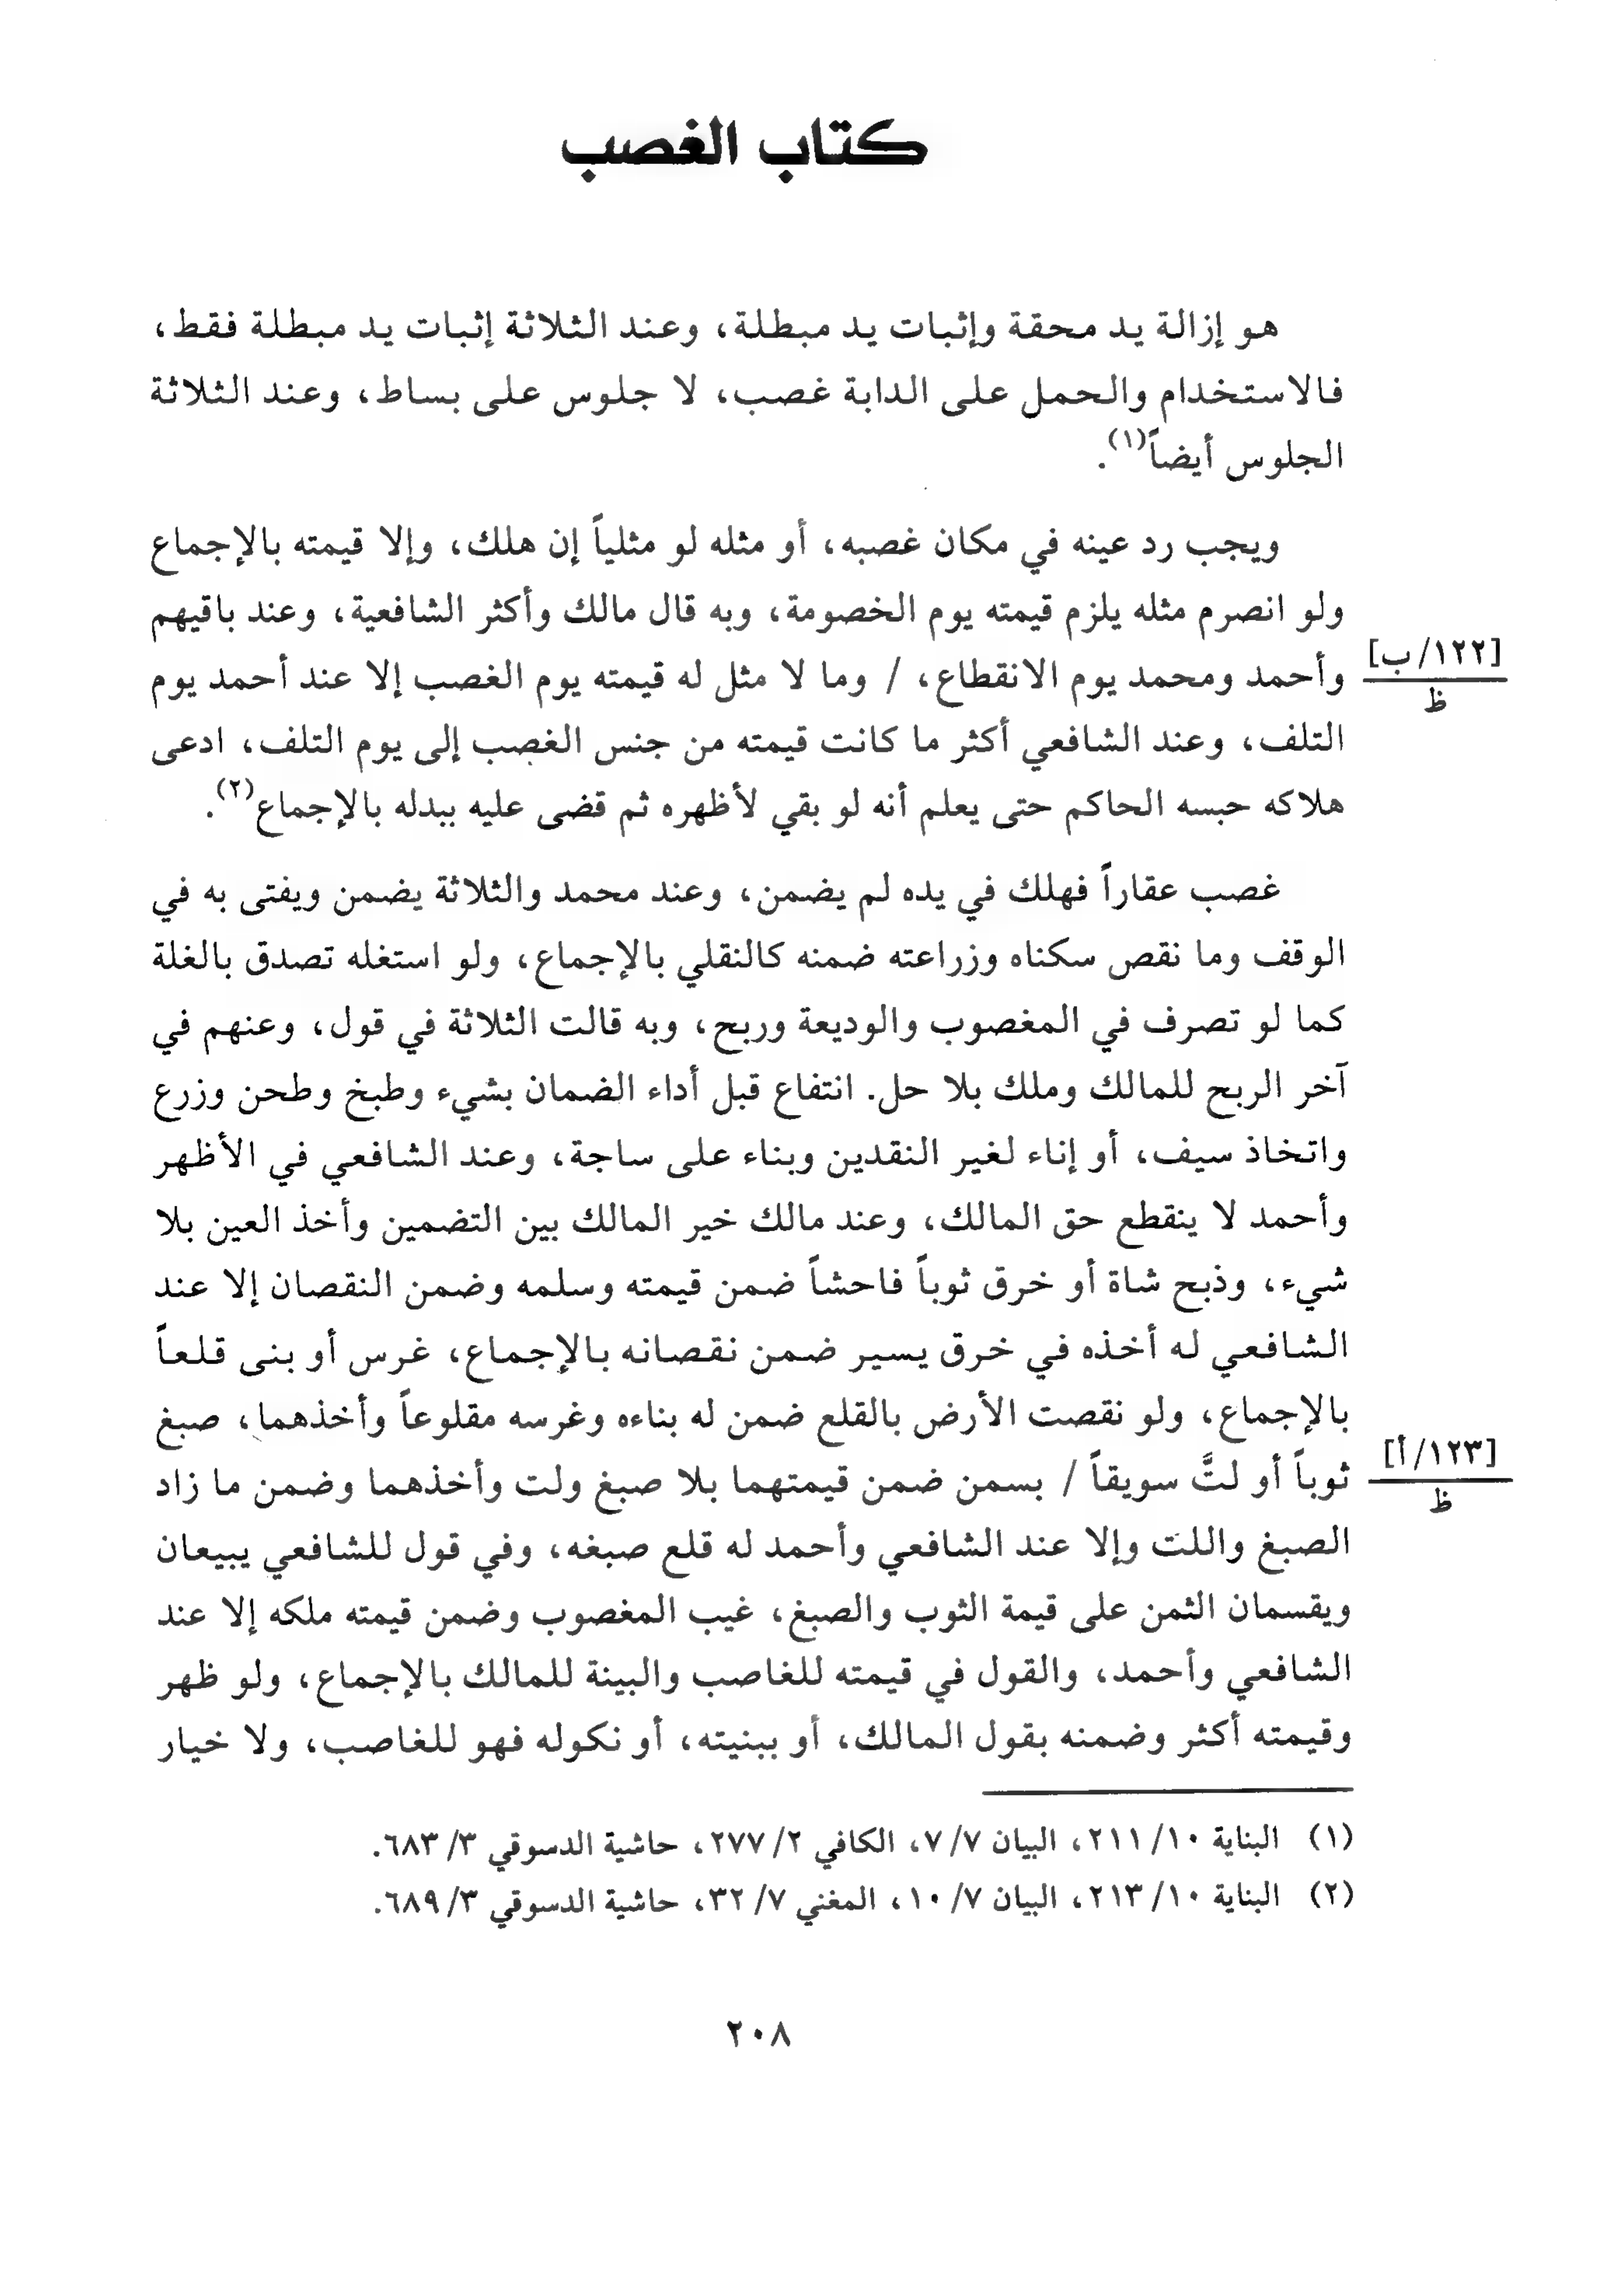 كتاب الغصب
هو إزالة يد محقة وإثبات يد مبطلة، وعند الثلاثة إثبات يد مبطلة فقط،
فالاستخدام والحمل على الدابة غصب، لا جلوس على بساط، وعند الثلاثة
الجلوس أيضاً(١).
ويجب رد عينه في مكان غصبه، أو مثله لو مثلياً إن هلك، وإلا قيمته بالإجماع
ولو انصرم مثله يلزم قيمته يوم الخصومة، وبه قال مالك وأكثر الشافعية، وعند باقيهم
وأحمد ومحمد يوم الانقطاع، / وما لا مثل له قيمته يوم الغصب إلا عند أحمد يوم
[١٢٢/ب]
ظ
التلف، وعند الشافعي أكثر ما كانت قيمته من جنس الغصب إلى يوم التلف، ادعى
هلاكه حبسه الحاكم حتى يعلم أنه لو بقي لأظهره ثم قضى عليه ببدله بالإجماع(٢).
غصب عقاراً فهلك في يده لم يضمن، وعند محمد والثلاثة يضمن ويفتى به في
الوقف وما نقص سكناه وزراعته ضمنه كالنقلي بالإجماع، ولو استغله تصدق بالغلة
كما لو تصرف في المغصوب والوديعة وربح، وبه قالت الثلاثة في قول، وعنهم في
آخر الربح للمالك وملك بلا حل. انتفاع قبل أداء الضمان بشيء وطبخ وطحن وزرع
واتخاذ سيف، أو إناء لغير النقدين وبناء على ساجة، وعند الشافعي في الأظهر
وأحمد لا ينقطع حق المالك، وعند مالك خير المالك بين التضمين وأخذ العين بلا
شيء، وذبح شاة أو خرق ثوباً فاحشاً ضمن قيمته وسلمه وضمن النقصان إلا عند
الشافعي له أخذه في خرق يسير ضمن نقصانه بالإجماع، غرس أو بنى قلعاً
بالإجماع، ولو نقصت الأرض بالقلع ضمن له بناءه وغرسه مقلوعاً وأخذهما، صبغ
ثوباً أو لتَّ سويقاً / بسمن ضمن قيمتهما بلا صبغ ولت وأخذهما وضمن ما زاد
[١٢٣/أ]
ظ
الصبغ واللت وإلا عند الشافعي وأحمد له قلع صبغه، وفي قول للشافعي يبيعان
ويقسمان الثمن على قيمة الثوب والصبغ، غيب المغصوب وضمن قيمته ملكه إلا عند
الشافعي وأحمد، والقول في قيمته للغاصب والبينة للمالك بالإجماع، ولو ظهر
وقيمته أكثر وضمنه بقول المالك، أو ببنيته، أو نكوله فهو للغاصب، ولا خيار
(١) البناية ١٠/ ٢١١، البيان ٧/ ٧، الكافي ٢/ ٢٧٧، حاشية الدسوقي ٣/ ٦٨٣.
(٢) البناية ١٠/ ٢١٣، البيان ٧/ ١٠، المغني ٧/ ٣٢، حاشية الدسوقي ٣/ ٦٨٩.
٢٠٨